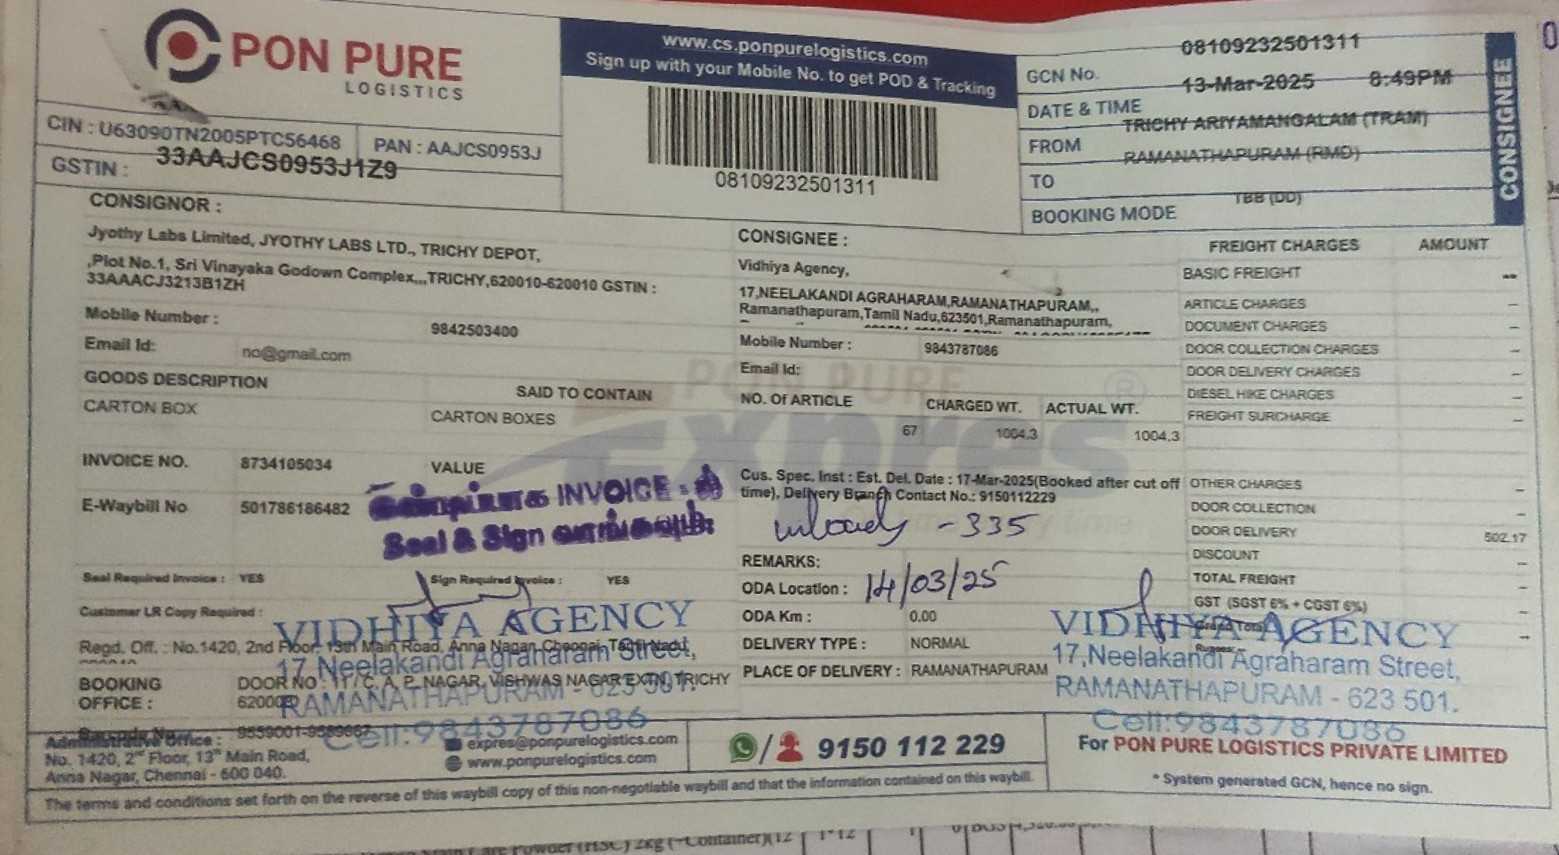 PON PURE
LOGISTICS
www.cs.ponpurelogistics.com
Sign up with your Mobile No. to get POD & Tracking
08109232501311
GCN No. 08109232501311
DATE & TIME 13-Mar-2025 8:49PM
FROM TRICHY ARIYAMANGALAM (TRAM)
TO RAMANATHAPURAM (RMD)
BOOKING MODE TBB (DD)
CONSIGNEE
CIN : U63090TN2005PTC56468 PAN : AAJCS0953J
GSTIN : 33AAJCS0953J1Z9
CONSIGNOR :
Jyothy Labs Limited, JYOTHY LABS LTD., TRICHY DEPOT,
,Plot No.1, Sri Vinayaka Godown Complex,,,TRICHY,620010-620010 GSTIN :
33AAACJ3213B1ZH
Mobile Number : 9842503400
Email Id: no@gmail.com
GOODS DESCRIPTION SAID TO CONTAIN
CARTON BOX CARTON BOXES
INVOICE NO. 8734105034 VALUE
E-Waybill No 501786186482
INVOICE
Seal & Sign
Seal Required Invoice : YES Sign Required Invoice : YES
Customer LR Copy Required :
Regd. Off. : No.1420, 2nd Floor, 13th Main Road, Anna Nagar, Chennai, Tamil Nadu,
BOOKING OFFICE : DOOR NO : 17/C, A. P. NAGAR, VISHWAS NAGAR EXTN, TRICHY
CONSIGNEE :
Vidhiya Agency,
17,NEELAKANDI AGRAHARAM,RAMANATHAPURAM,,
Ramanathapuram,Tamil Nadu,623501,Ramanathapuram,
Mobile Number : 9843787086
Email Id:
NO. Of ARTICLE CHARGED WT. ACTUAL WT.
67 1004.3 1004.3
PON PURE
Expres
Cus. Spec. Inst : Est. Del. Date : 17-Mar-2025(Booked after cut off
time), Delivery Branch Contact No.: 9150112229
-335
REMARKS:
14/03/25
ODA Location :
ODA Km : 0.00
DELIVERY TYPE : NORMAL
PLACE OF DELIVERY : RAMANATHAPURAM
FREIGHT CHARGES AMOUNT
BASIC FREIGHT --
ARTICLE CHARGES --
DOCUMENT CHARGES --
DOOR COLLECTION CHARGES --
DOOR DELIVERY CHARGES --
DIESEL HIKE CHARGES --
FREIGHT SURCHARGE --
OTHER CHARGES --
DOOR COLLECTION --
DOOR DELIVERY 502.17
DISCOUNT --
TOTAL FREIGHT --
GST (SGST 6% + CGST 6%) --
VIDHIYA AGENCY
17,Neelakandi Agraharam Street,
RAMANATHAPURAM - 623 501.
Cell:9843787086
VIDHIYA AGENCY
17,Neelakandi Agraharam Street,
RAMANATHAPURAM - 623 501.
Cell:9843787086
Administrative Office :
No. 1420, 2nd Floor, 13th Main Road,
Anna Nagar, Chennai - 600 040.
expres@ponpurelogistics.com
www.ponpurelogistics.com
9150 112 229
For PON PURE LOGISTICS PRIVATE LIMITED
* System generated GCN, hence no sign.
The terms and conditions set forth on the reverse of this waybill copy of this non-negotiable waybill and that the information contained on this waybill.